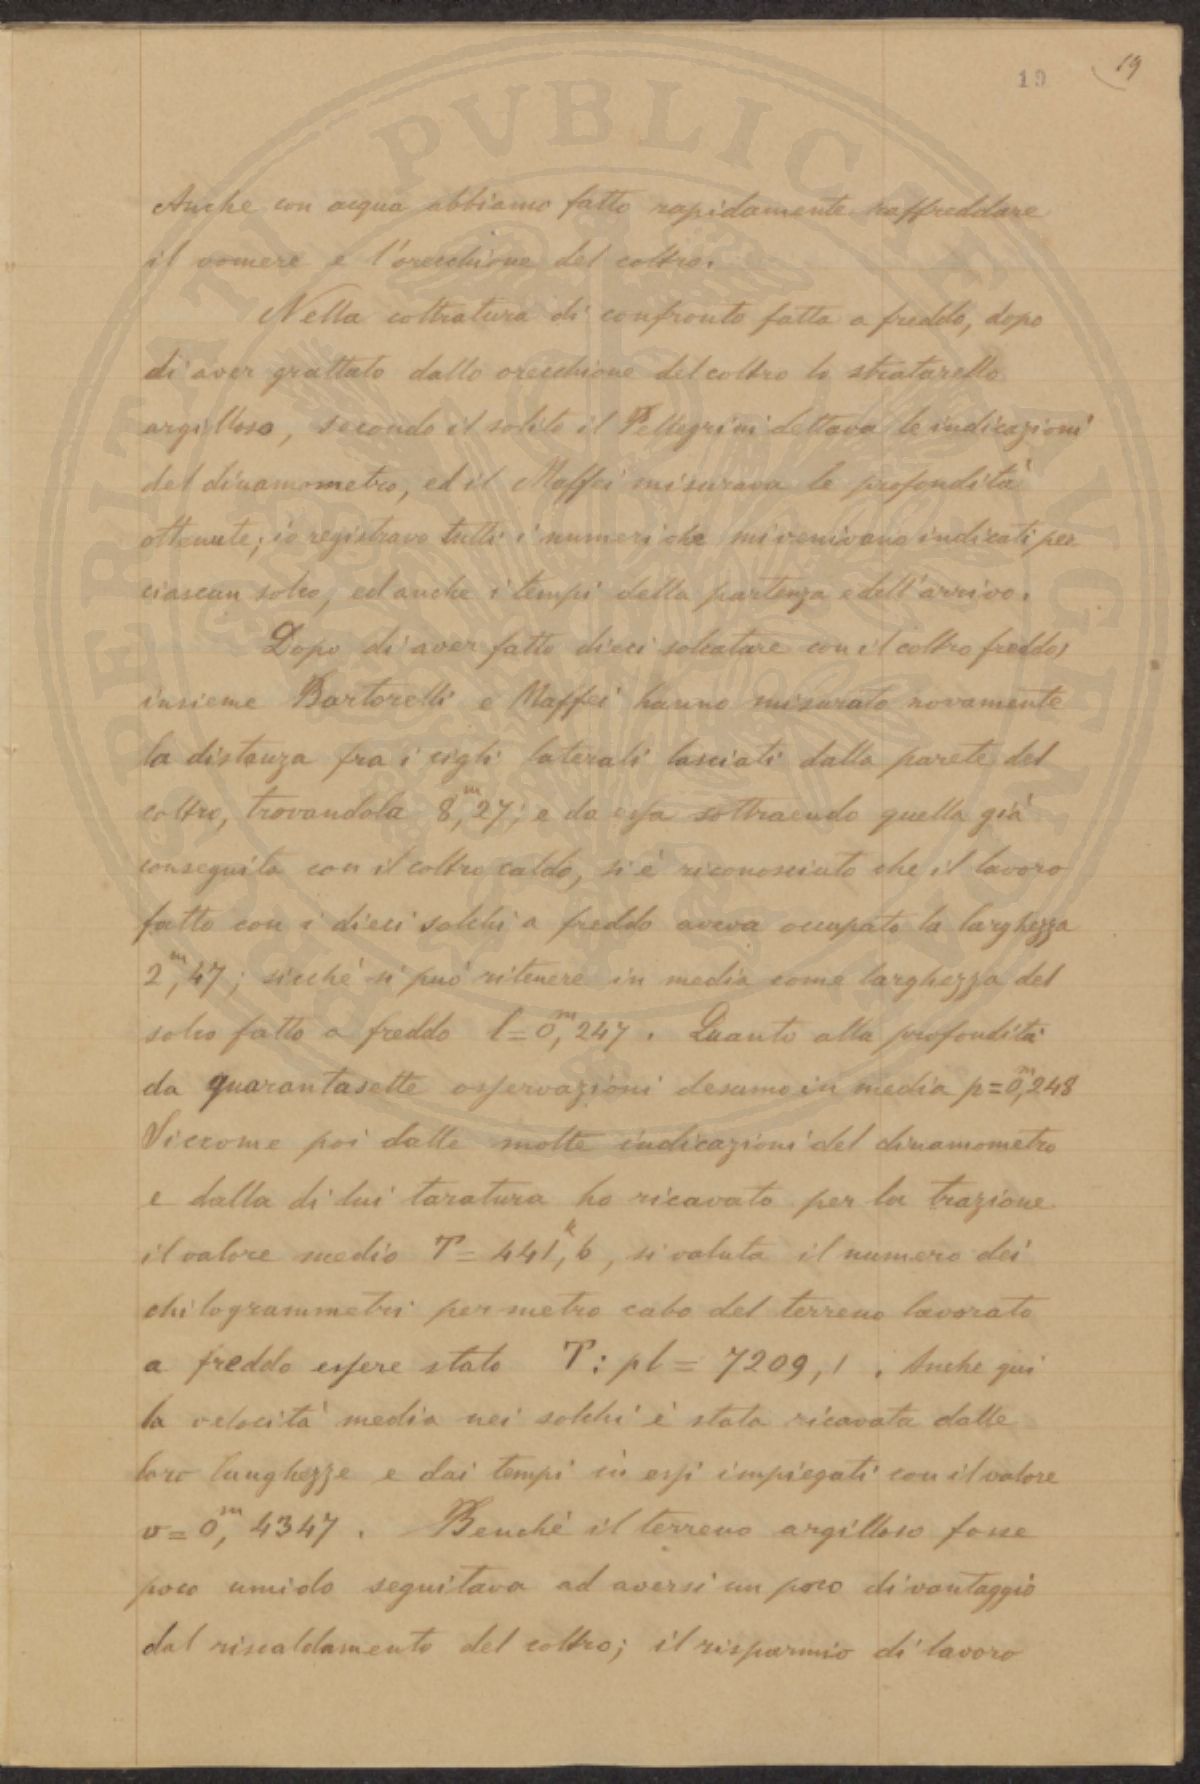 19
19
PROSPERITATI PUBLICAE AVGENDAE
Anche con acqua abbiamo fatto rapidamente raffreddare
il vomere e l'orecchione del coltro.
Nella coltratura di confronto fatta a freddo, dopo
di aver grattato dallo orecchione del coltro lo stratarello
argilloso, secondo il solito il Pellegrini dettava le indicazioni
del dinamometro, ed il Maffei misurava le profondità
ottenute; io registravo tutti i numeri che mi venivano indicati per
ciascun solco, ed anche i tempi della partenza e dell'arrivo.
Dopo di aver fatto dieci solcature con il coltro freddo,
insieme Bartorelli e Maffei hanno misurato novamente
la distanza fra i cigli laterali lasciati dalla parete del
coltro, trovandola 8,ᵐ27; e da essa sottraendo quella già
conseguita con il coltro caldo, si è riconosciuto che il lavoro
fatto con i dieci solchi a freddo aveva occupato la larghezza
2,ᵐ47; sicchè si può ritenere in media come larghezza del
solco fatto a freddo l=0,ᵐ247. Quanto alla profondità
da quarantasette osservazioni desumo in media p=0,ᵐ248
Siccome poi dalle molte indicazioni del dinamometro
e dalla di lui taratura ho ricavato per la trazione
il valore medio T=441,ᵏ6, si valuta il numero dei
chilogrammetri per metro cubo del terreno lavorato
a freddo essere stato T:pl=7209,1. Anche qui
la velocità media nei solchi è stata ricavata dalle
loro lunghezze e dai tempi in essi impiegati con il valore
v=0,ᵐ4347. Benchè il terreno argilloso fosse
poco umido seguitava ad aversi un poco di vantaggio
dal riscaldamento del coltro; il risparmio di lavoro